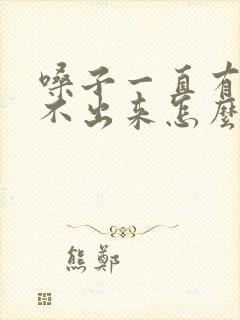 嗓子一直有
不出来怎麼
熊鄭